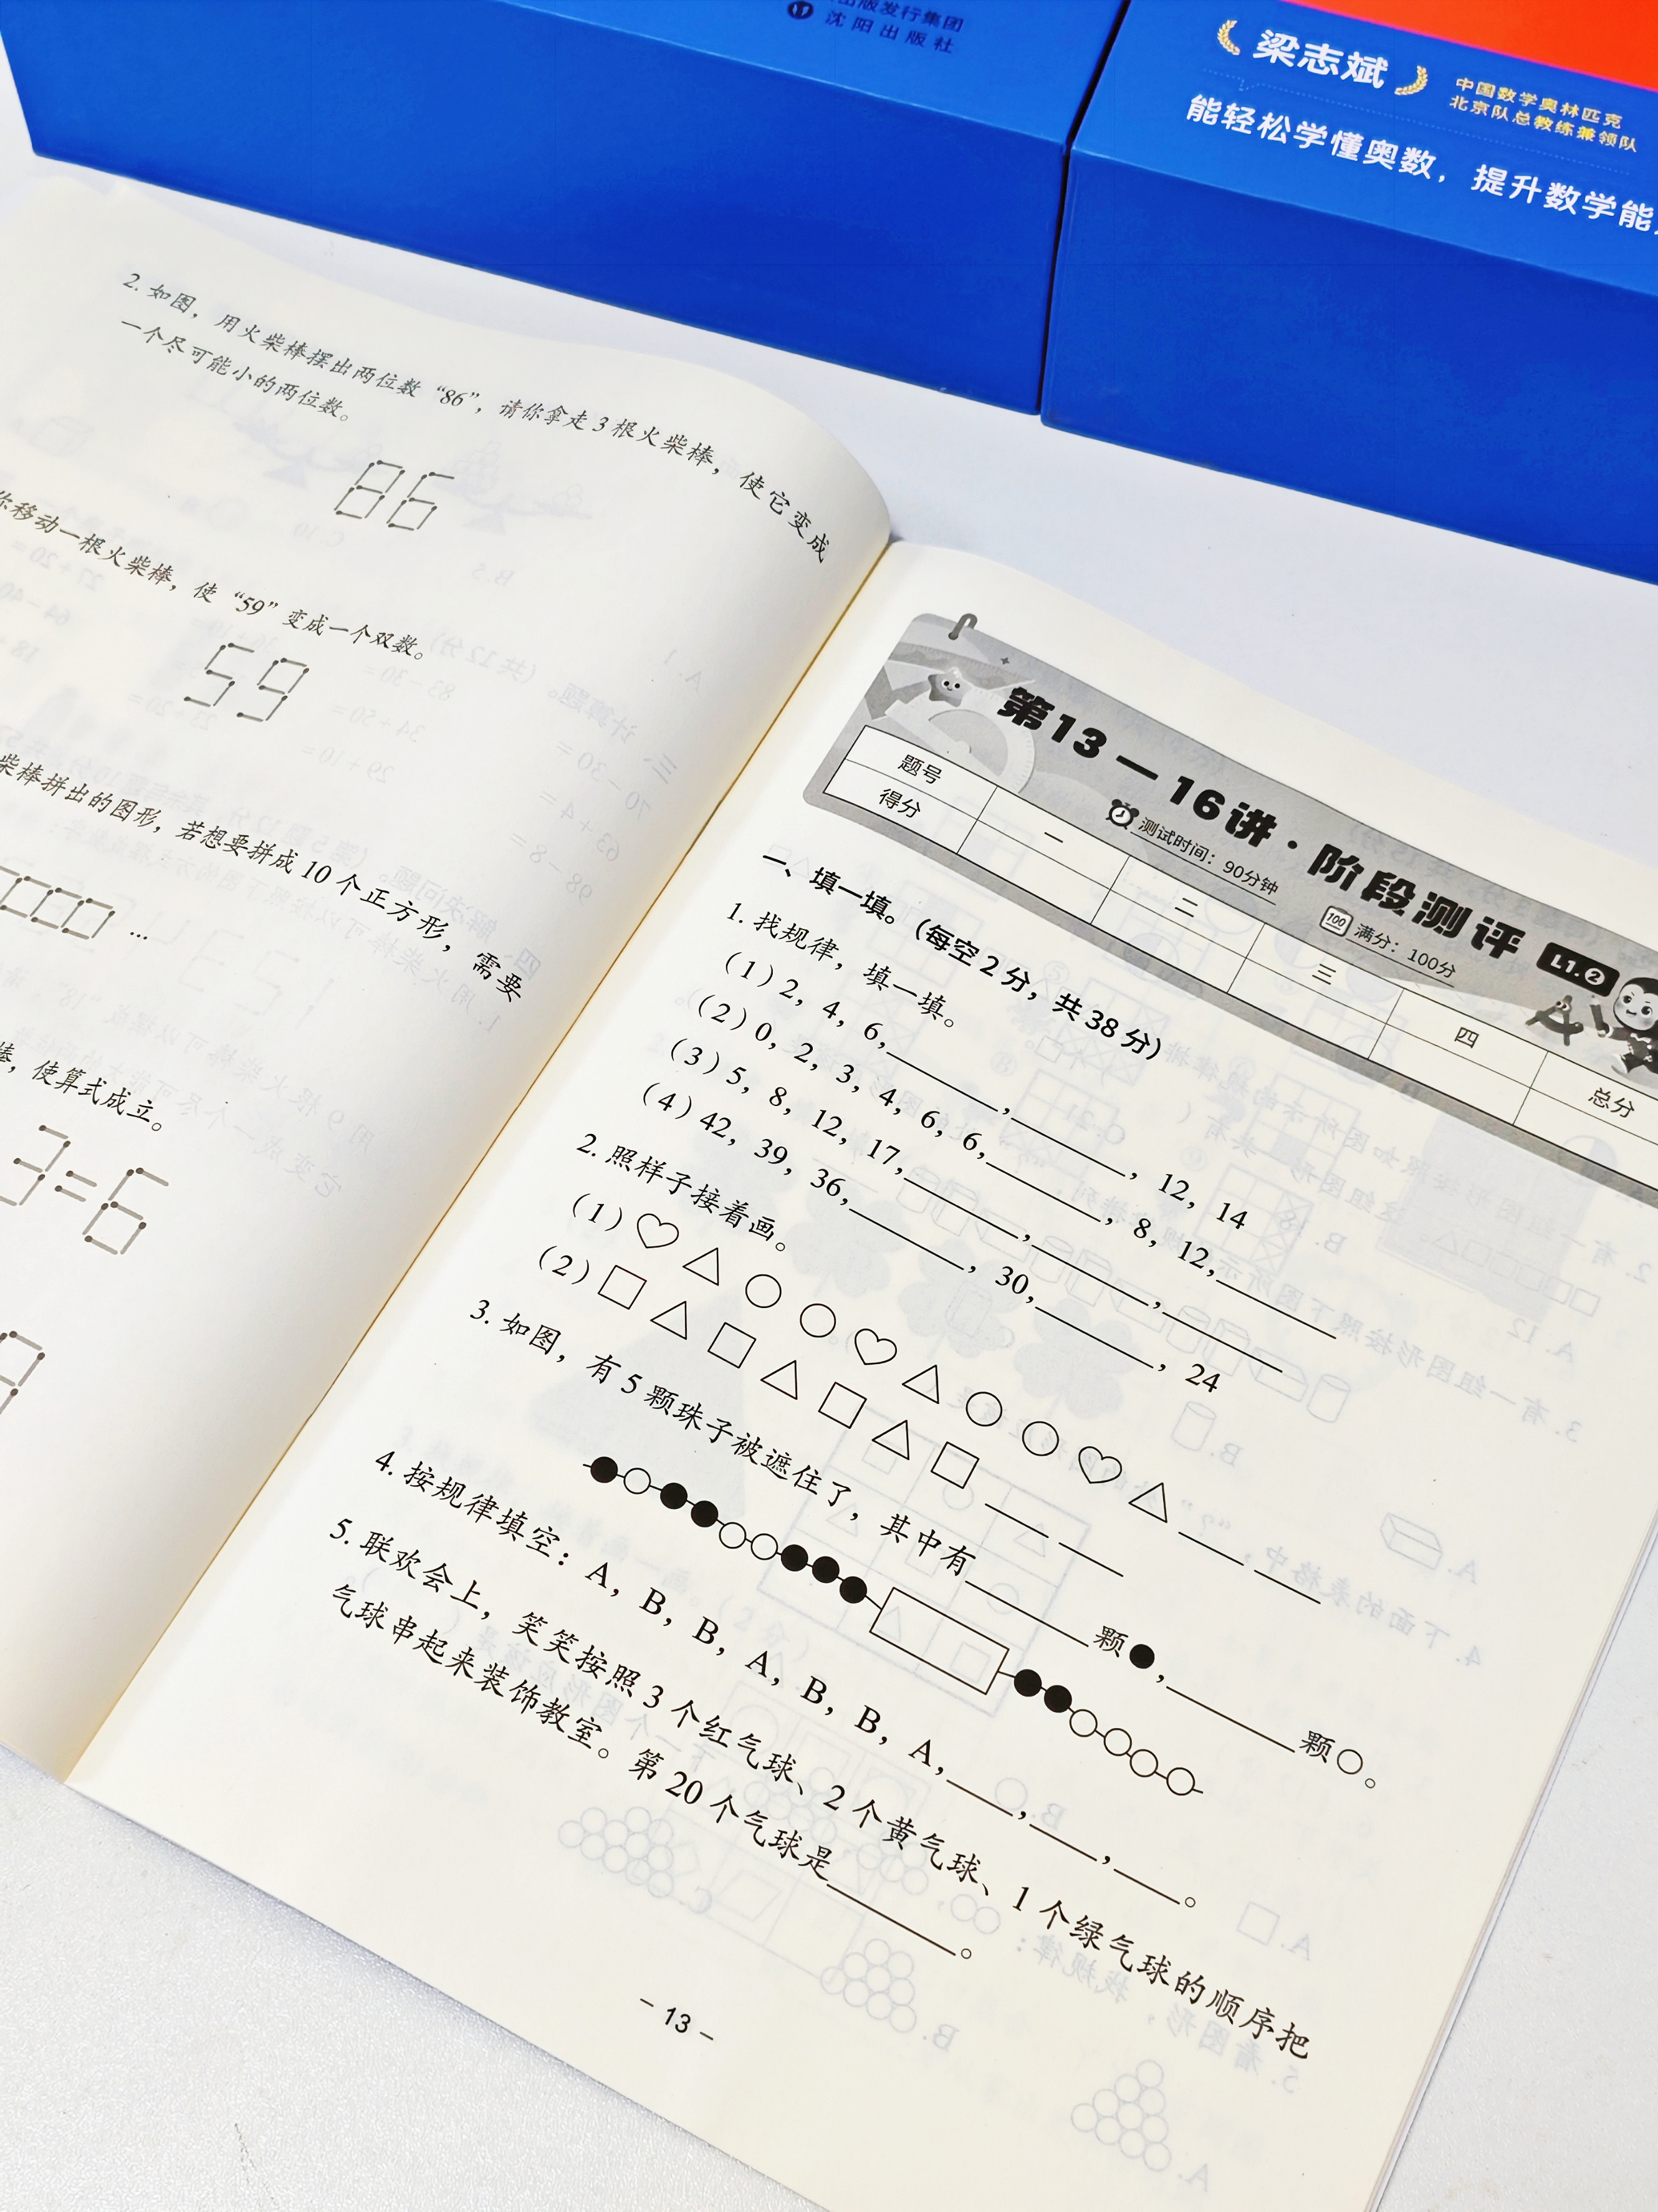 出版发行集团
沈阳出版社
梁志斌
中国数学奥林匹克
北京队总教练兼领队
能轻松学懂奥数，提升数学能
2. 如图，用火柴棒摆出两位数“86”，请你拿走3根火柴棒，使它变成
一个尽可能小的两位数。
86
你移动一根火柴棒，使“59”变成一个双数。
59
柴棒拼出的图形，若想要拼成10个正方形，需要
…
棒，使算式成立。
3=6
第13—16讲·阶段测评 L1.2
测试时间：90分钟 100 满分：100分
题号 一 二 三 四 总分
得分
一、填一填。（每空2分，共38分）
1. 找规律，填一填。
（1）2，4，6，______，______，12，14
（2）0，2，3，4，6，6，______，8，12，______
（3）5，8，12，17，______，______，______
（4）42，39，36，______，30，______，24
2. 照样子接着画。
（1）♡△○○♡△○○♡△______ ______
（2）□△□△□△□______ ______
3. 如图，有5颗珠子被遮住了，其中有______颗●，______颗○。
4. 按规律填空：A，B，B，A，B，B，A，____，____，____。
5. 联欢会上，笑笑按照3个红气球、2个黄气球、1个绿气球的顺序把
气球串起来装饰教室。第20个气球是______。
- 13 -